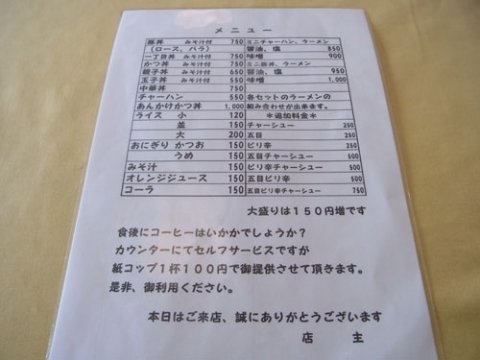 メニュー
豚丼 みそ汁付 750 ミニチャーハン、ラーメン
(ロース、バラ) 醤油、塩 850
一丁目丼 みそ汁付 750 味噌 900
かつ丼 みそ汁付 750 ミニ豚丼、ラーメン
親子丼 みそ汁付 650 醤油、塩 950
玉子丼 みそ汁付 550 味噌 1,000
中華丼 750
チャーハン 550 各セットのラーメンの
あんかけかつ丼 1,000 組み合わせが出来ます。
ライス 小 120 *追加料金*
並 150 チャーシュー 250
大 200 五目 250
おにぎり かつお 150 ピリ辛 250
うめ 150 五目チャーシュー 500
みそ汁 150 ピリ辛チャーシュー 500
オレンジジュース 150 五目ピリ辛 500
コーラ 150 五目ピリ辛チャーシュー 750
大盛りは150円増です
食後にコーヒーはいかかでしょうか?
カウンターにてセルフサービスですが
紙コップ1杯100円で御提供させて頂きます。
是非、御利用ください。
本日はご来店、誠にありがとうございます
店 主